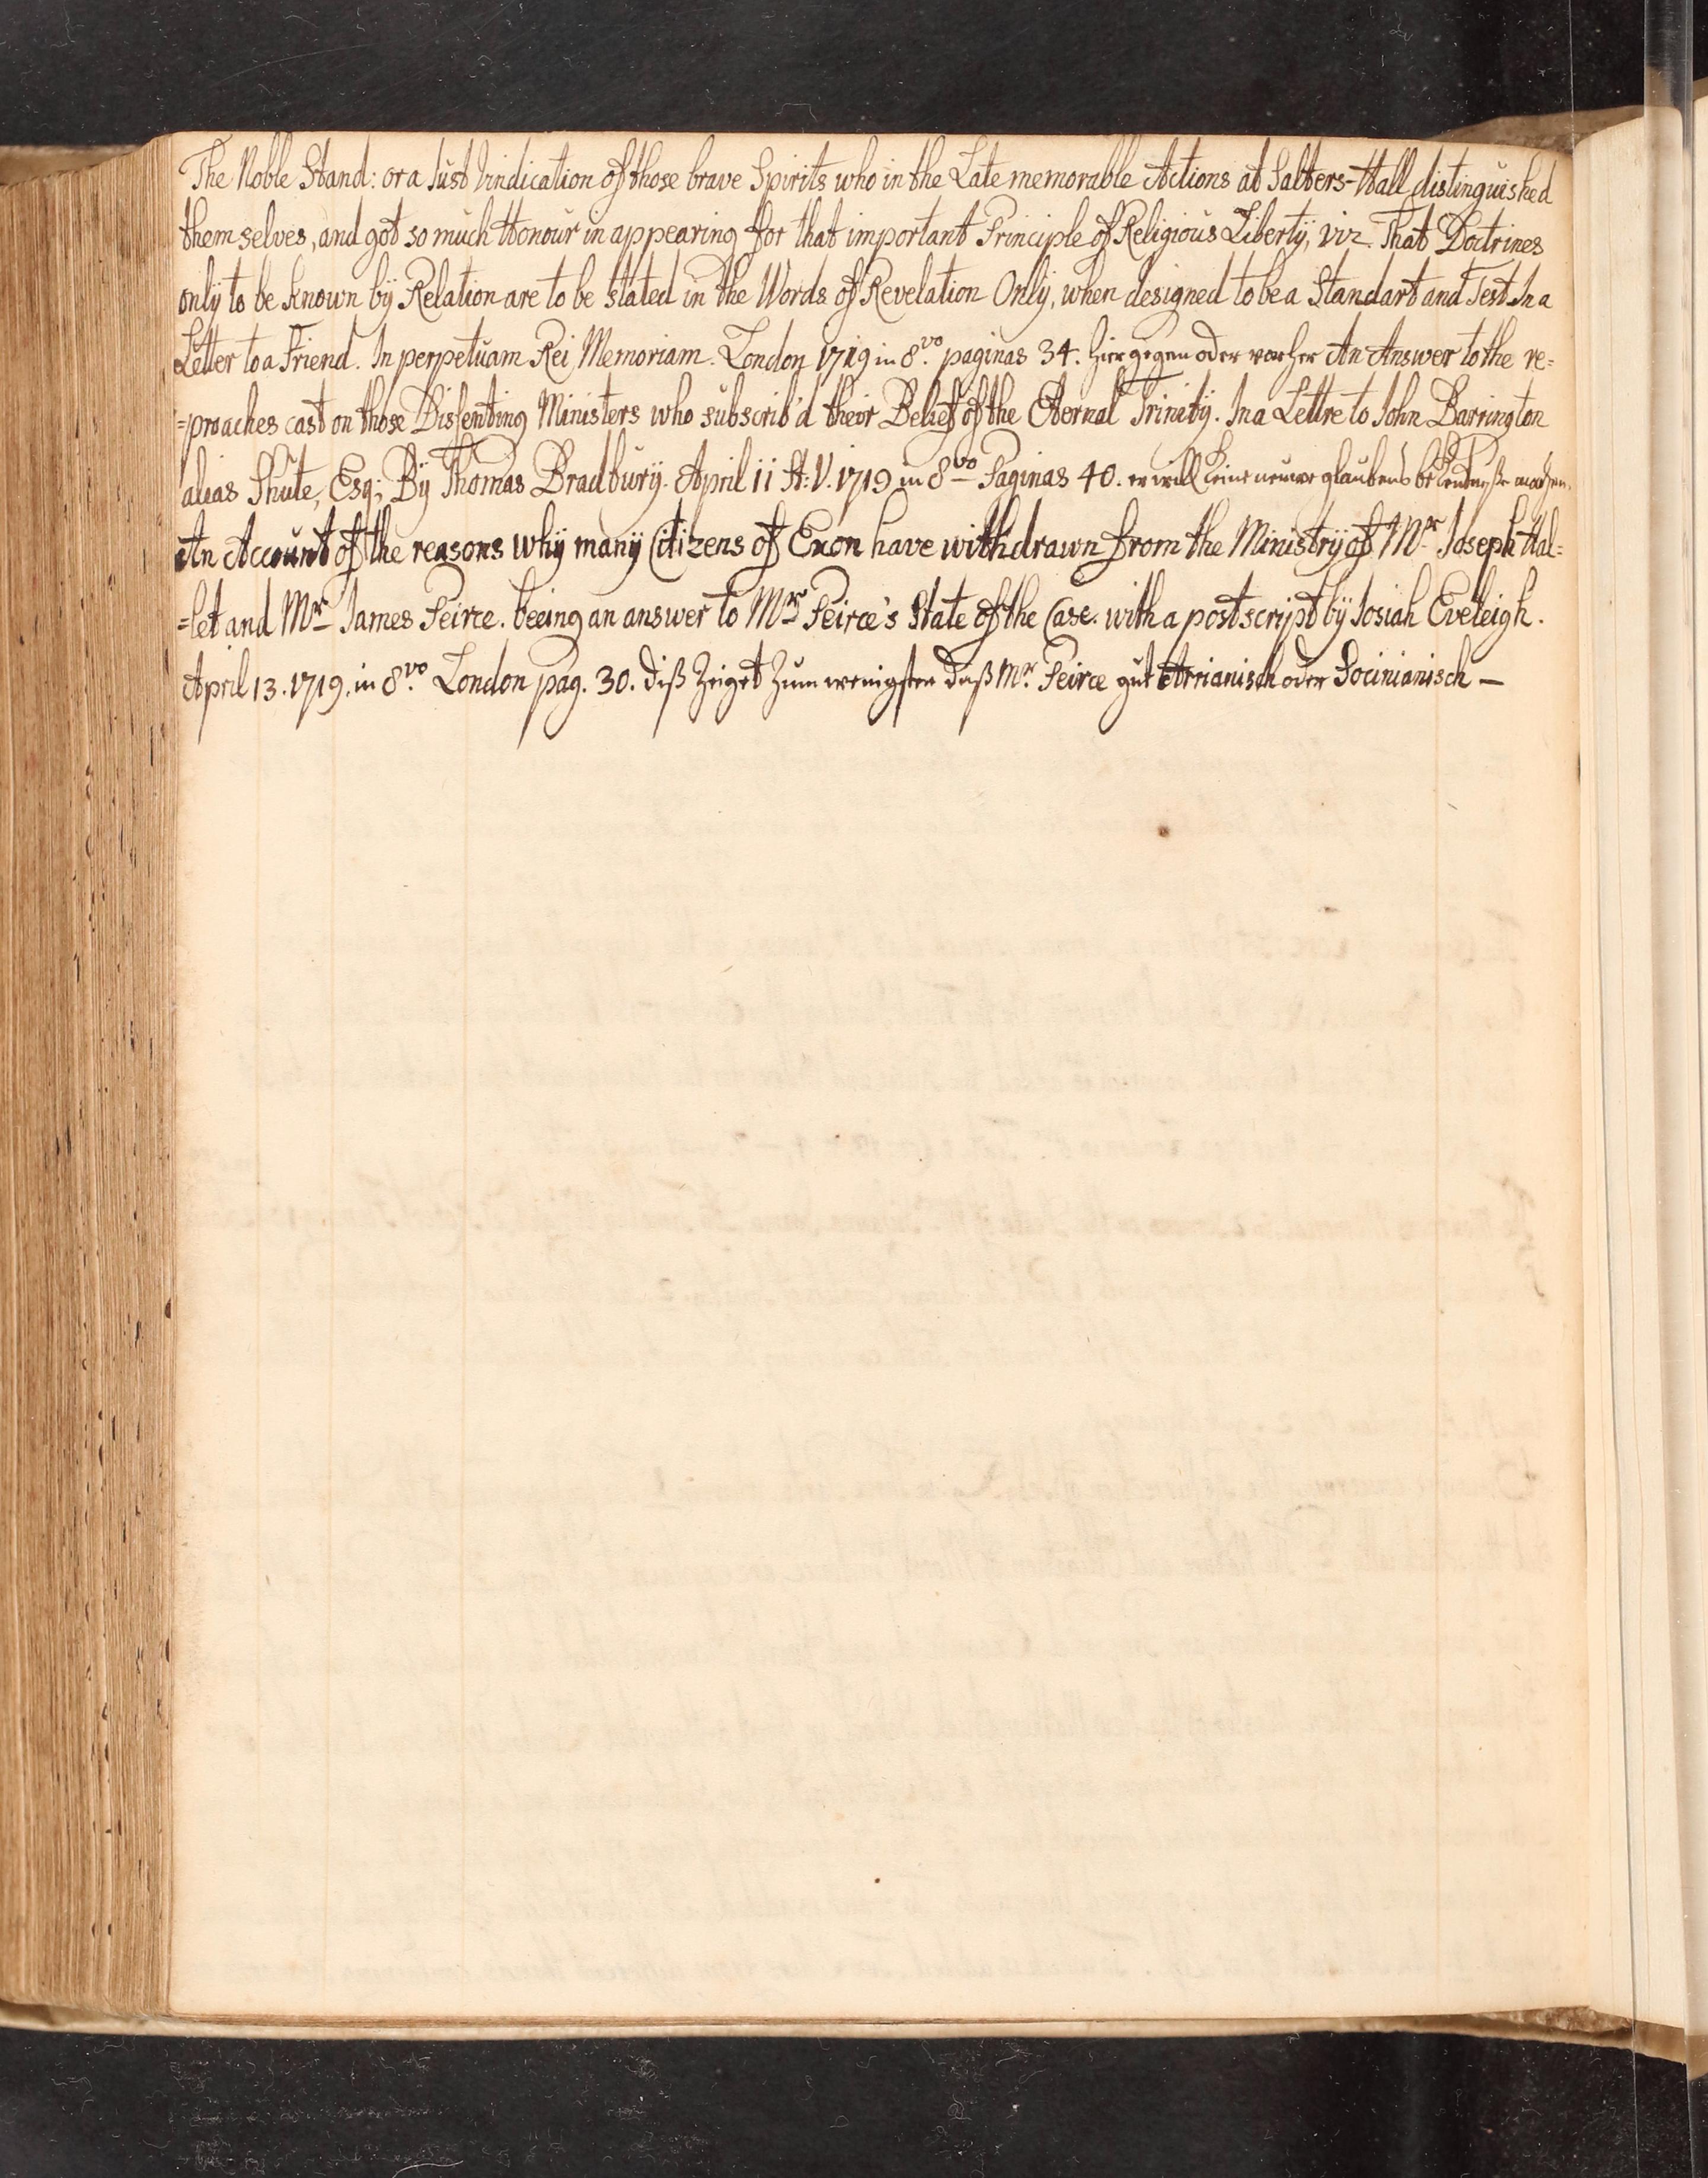 The Noble Stand: or a Just Vindication of those brave Spirits who in the Late memorable Actions at Salters-Hall distinguished
them selves, and got so much Honour in appearing for that important Principle of Religious Libertÿ, viz. That Doctrines
onlÿ to be known bÿ Relation are to be stated in the Words of Revelation Onlÿ, when designed to be a Standart and Test. In a
Letter to a Friend. In perpetuam Rei Memoriam. London 1719 in 8.vo paginas 34. hier gegen oder vorher An Answer to the re=
=proaches cast on those Dissenting Ministers who subscrib'd their Belief of the Eternal Trinitÿ. In a Lettre to John Barrington
alias Shute, Esq; Bÿ Thomas Bradburÿ. April 11 St. V. 1719 in 8vo Paginas 40. er will keine neuwe glaubens bekentnuße machen.
An Account of the reasons whÿ manÿ Citizens of Exon have withdrawn from the Ministrÿ of Mr. Joseph Hal=
=let and Mr. James Peirce. beeing an answer to Mr. Peirce's State of the Case. with a postscript bÿ Josiah Eveleigh.
April 13. 1719. in 8.vo London pag. 30. diß Zeiget Zum wenigsten daß Mr. Peirce gut Arrianisch oder Socinianisch —